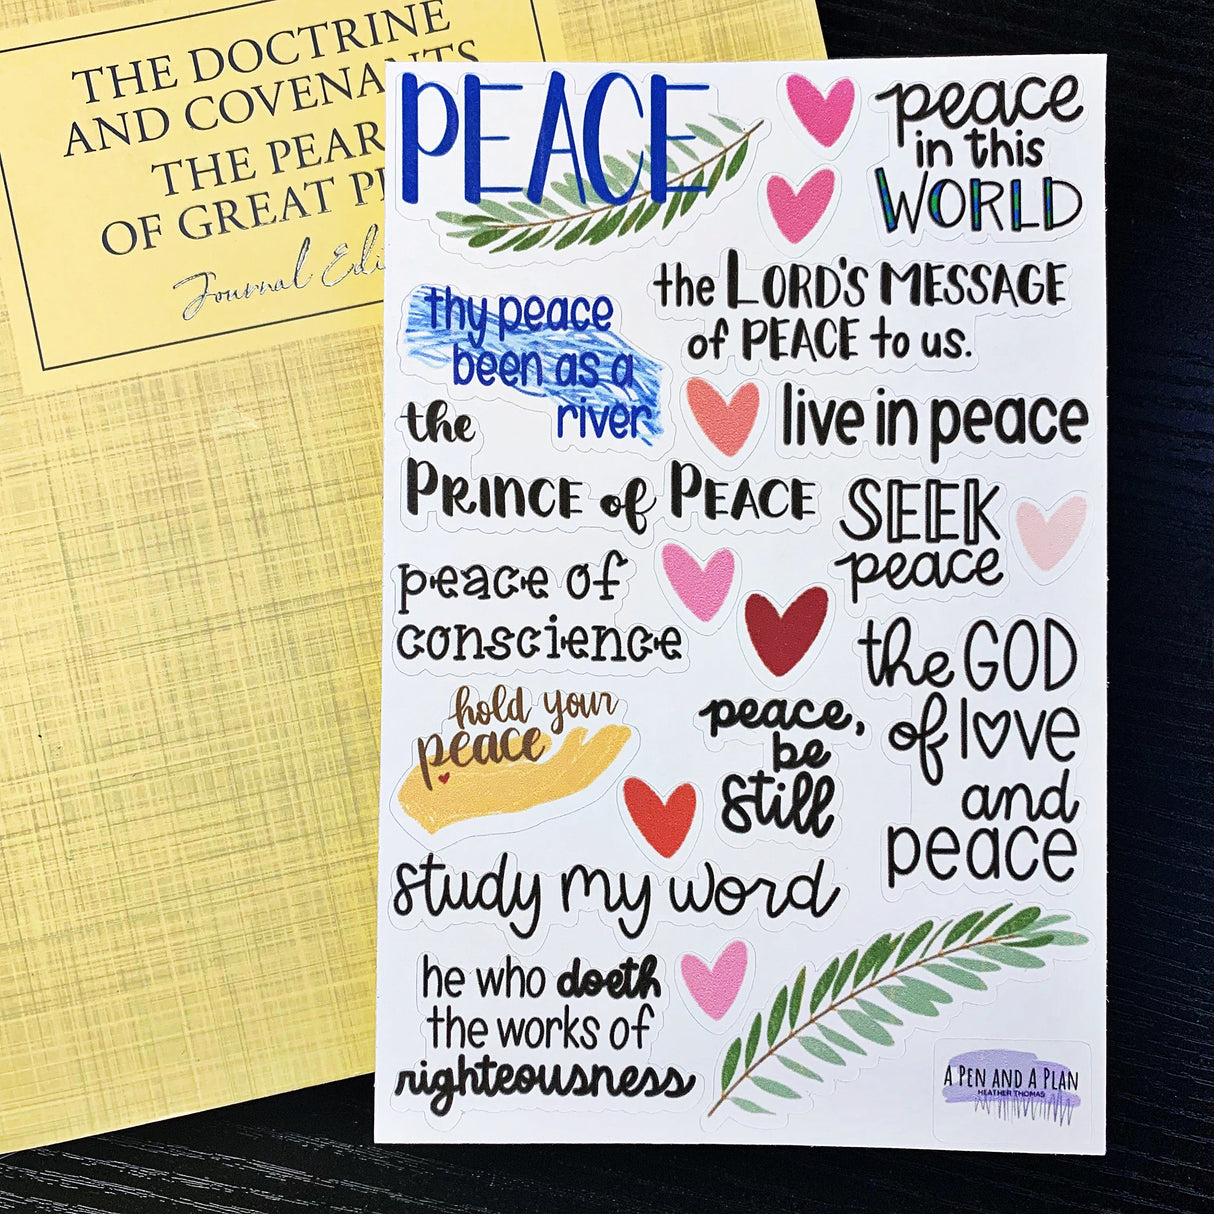 THE DOCTRINE
AND COVENANTS
THE PEAR
OF GREAT
Journal
PEACE
peace
in this
WORLD
the LORD'S MESSAGE
of PEACE to us.
thy peace
been as a
river
live in peace
the
PRINCE of PEACE
SEEK
peace
peace of
conscience
the GOD
of love
and
peace
hold your
peace
peace,
be
still
study my word
he who doeth
the works of
righteousness
A PEN AND A PLAN
HEATHER THOMAS